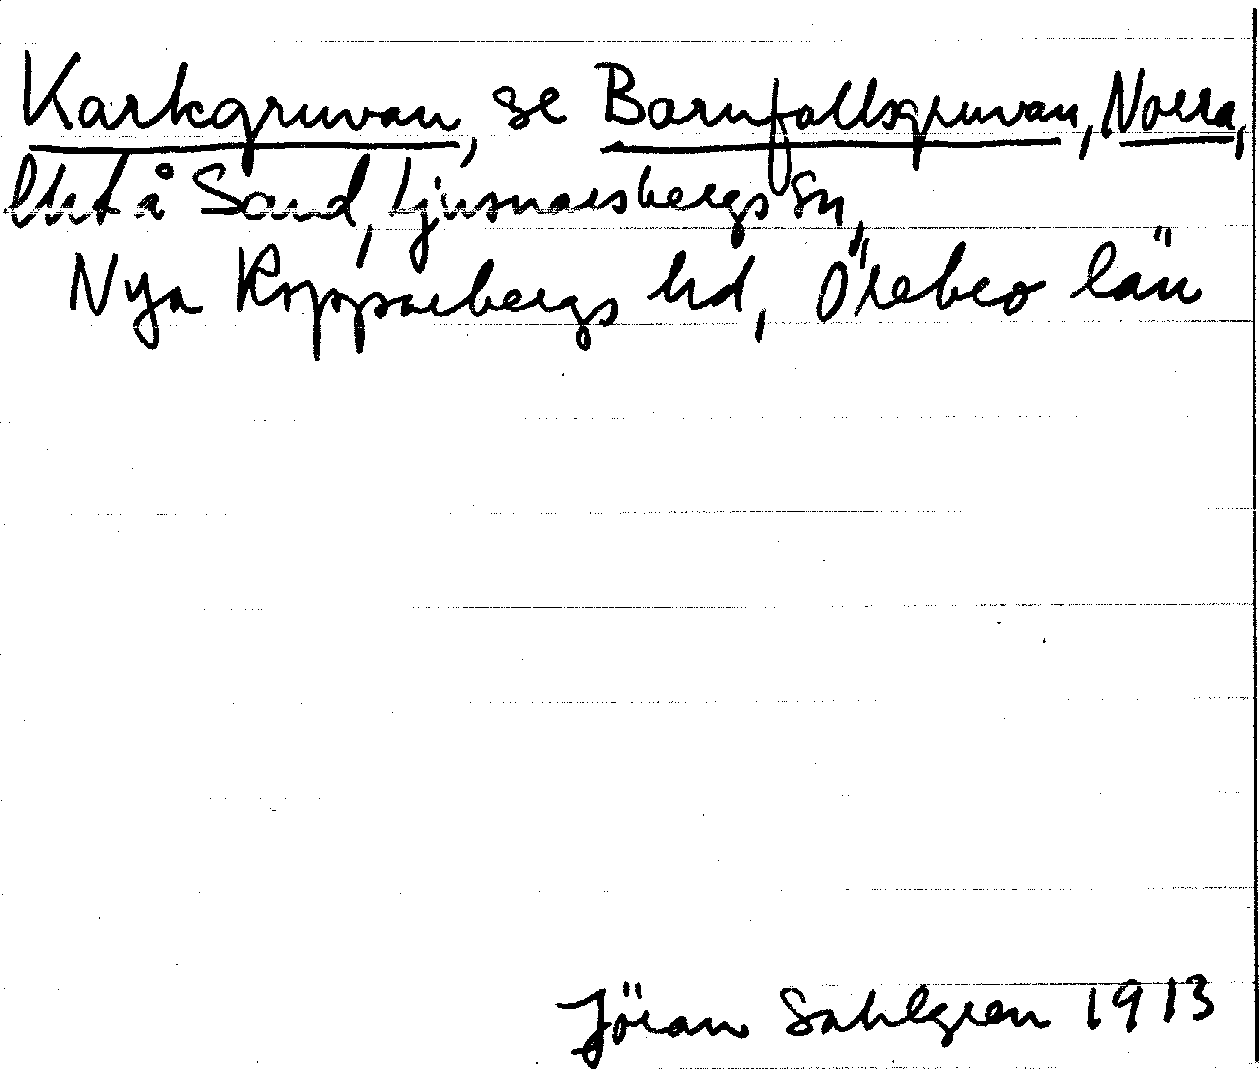 Karkgruvan, se Barnfallsgruvan, Norra,
å Sand, Ljusnarsbergs sn,
Nya Kopparbergs hd, Örebro län
Jöran Sahlgren 1913